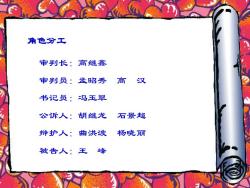 角色分工
审判长：高继磊
审判员：孟昭秀 高 汉
书记员：冯玉翠
公诉人：胡继龙 石景超
辩护人：曲洪波 杨晓丽
被告人：王 峰